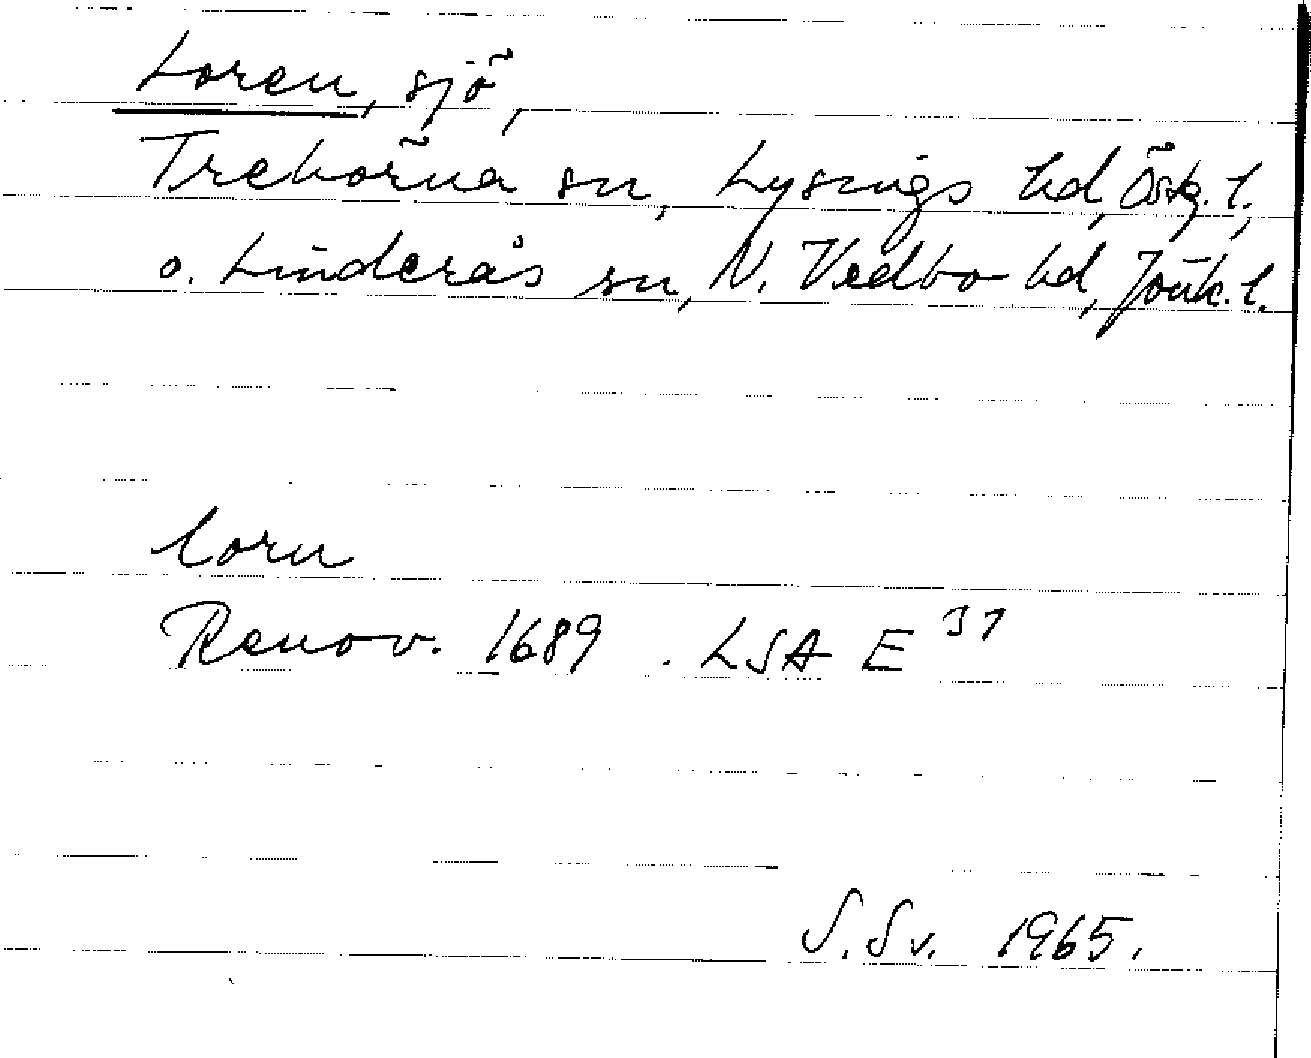 Loren, sjö,
Trehörna sn, Lysings hd, Östg. l.,
o. Linderås sn, N. Vedbo hd, Jönk. l.
lorn
Renov. 1689 . LSA E 37
S. Sv. 1965.